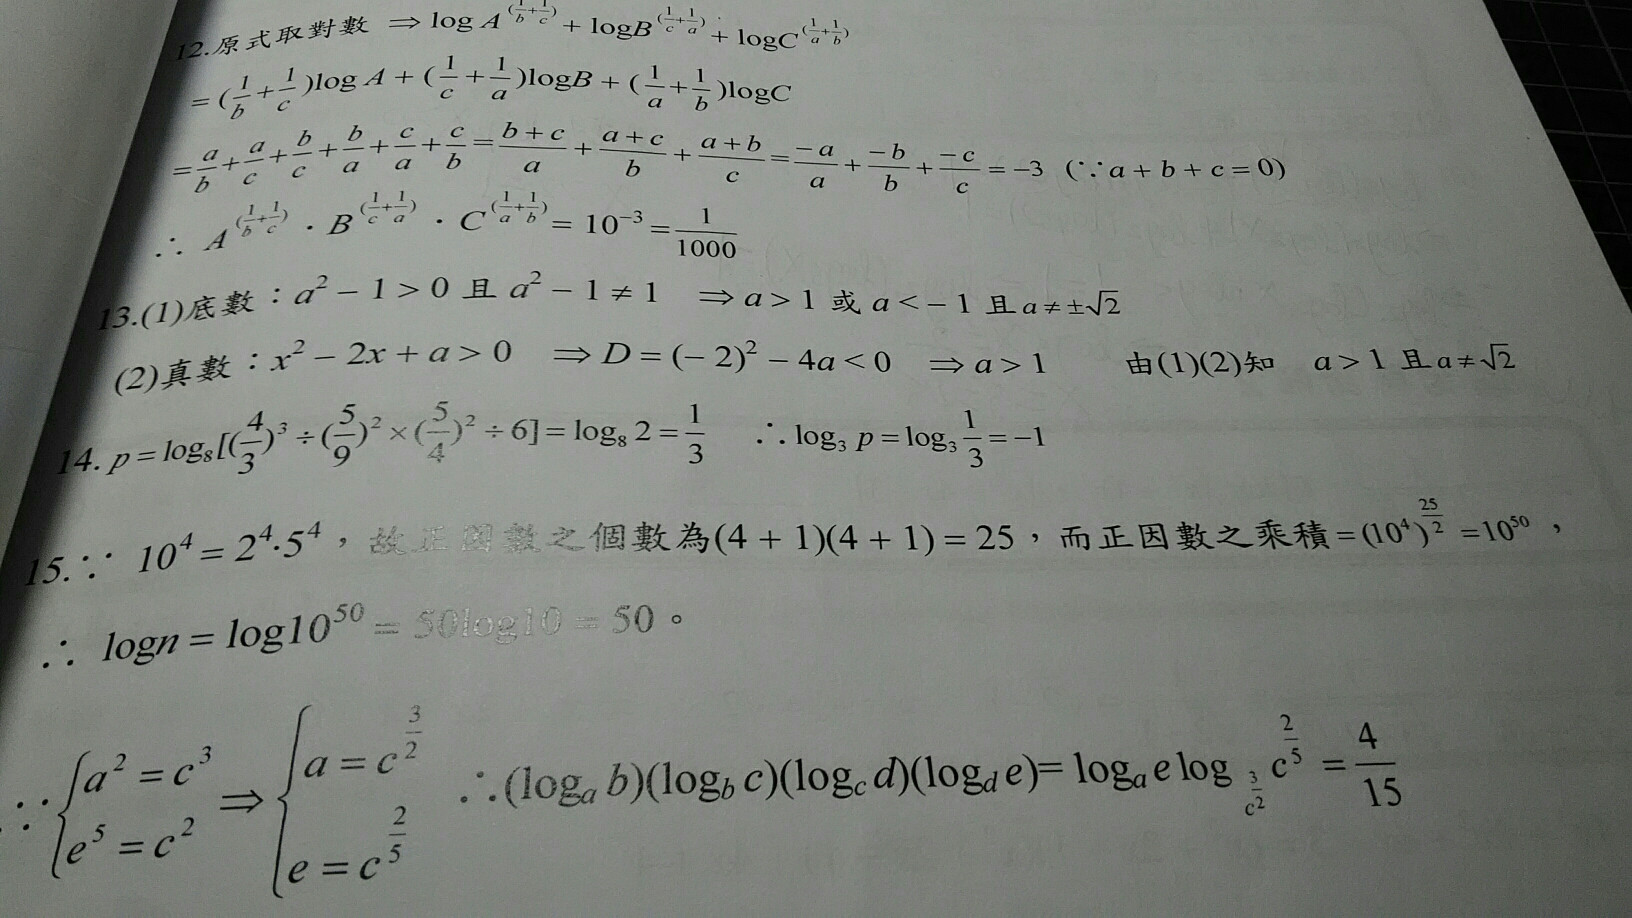 12.原式取對數 ⇒ log A^(1/b+1/c) + logB^(1/c+1/a) + logC^(1/a+1/b)
= (1/b + 1/c)log A + (1/c + 1/a)logB + (1/a + 1/b)logC
= a/b + a/c + b/c + b/a + c/a + c/b = (b+c)/a + (a+c)/b + (a+b)/c = −a/a + −b/b + −c/c = −3 (∵a + b + c = 0)
∴ A^(1/b+1/c) · B^(1/c+1/a) · C^(1/a+1/b) = 10⁻³ = 1/1000
13.(1)底數：a² − 1 > 0 且 a² − 1 ≠ 1 ⇒ a > 1 或 a < − 1 且 a ≠ ±√2
(2)真數：x² − 2x + a > 0 ⇒ D = (− 2)² − 4a < 0 ⇒ a > 1 由(1)(2)知 a > 1 且 a ≠ √2
14. p = log₈[(4/3)³ ÷ (5/9)² × (5/4)² ÷ 6] = log₈ 2 = 1/3 ∴ log₃ p = log₃ 1/3 = −1
15.∵ 10⁴ = 2⁴·5⁴，故正因數之個數為(4 + 1)(4 + 1) = 25，而正因數之乘積 = (10⁴)^(25/2) = 10⁵⁰，
∴ logn = log10⁵⁰ = 50log10 = 50。
∵ {a² = c³, e⁵ = c² ⇒ {a = c^(3/2), e = c^(2/5) ∴(logₐ b)(log_b c)(log_c d)(log_d e)= logₐ e log_(c^(3/2)) c^(2/5) = 4/15